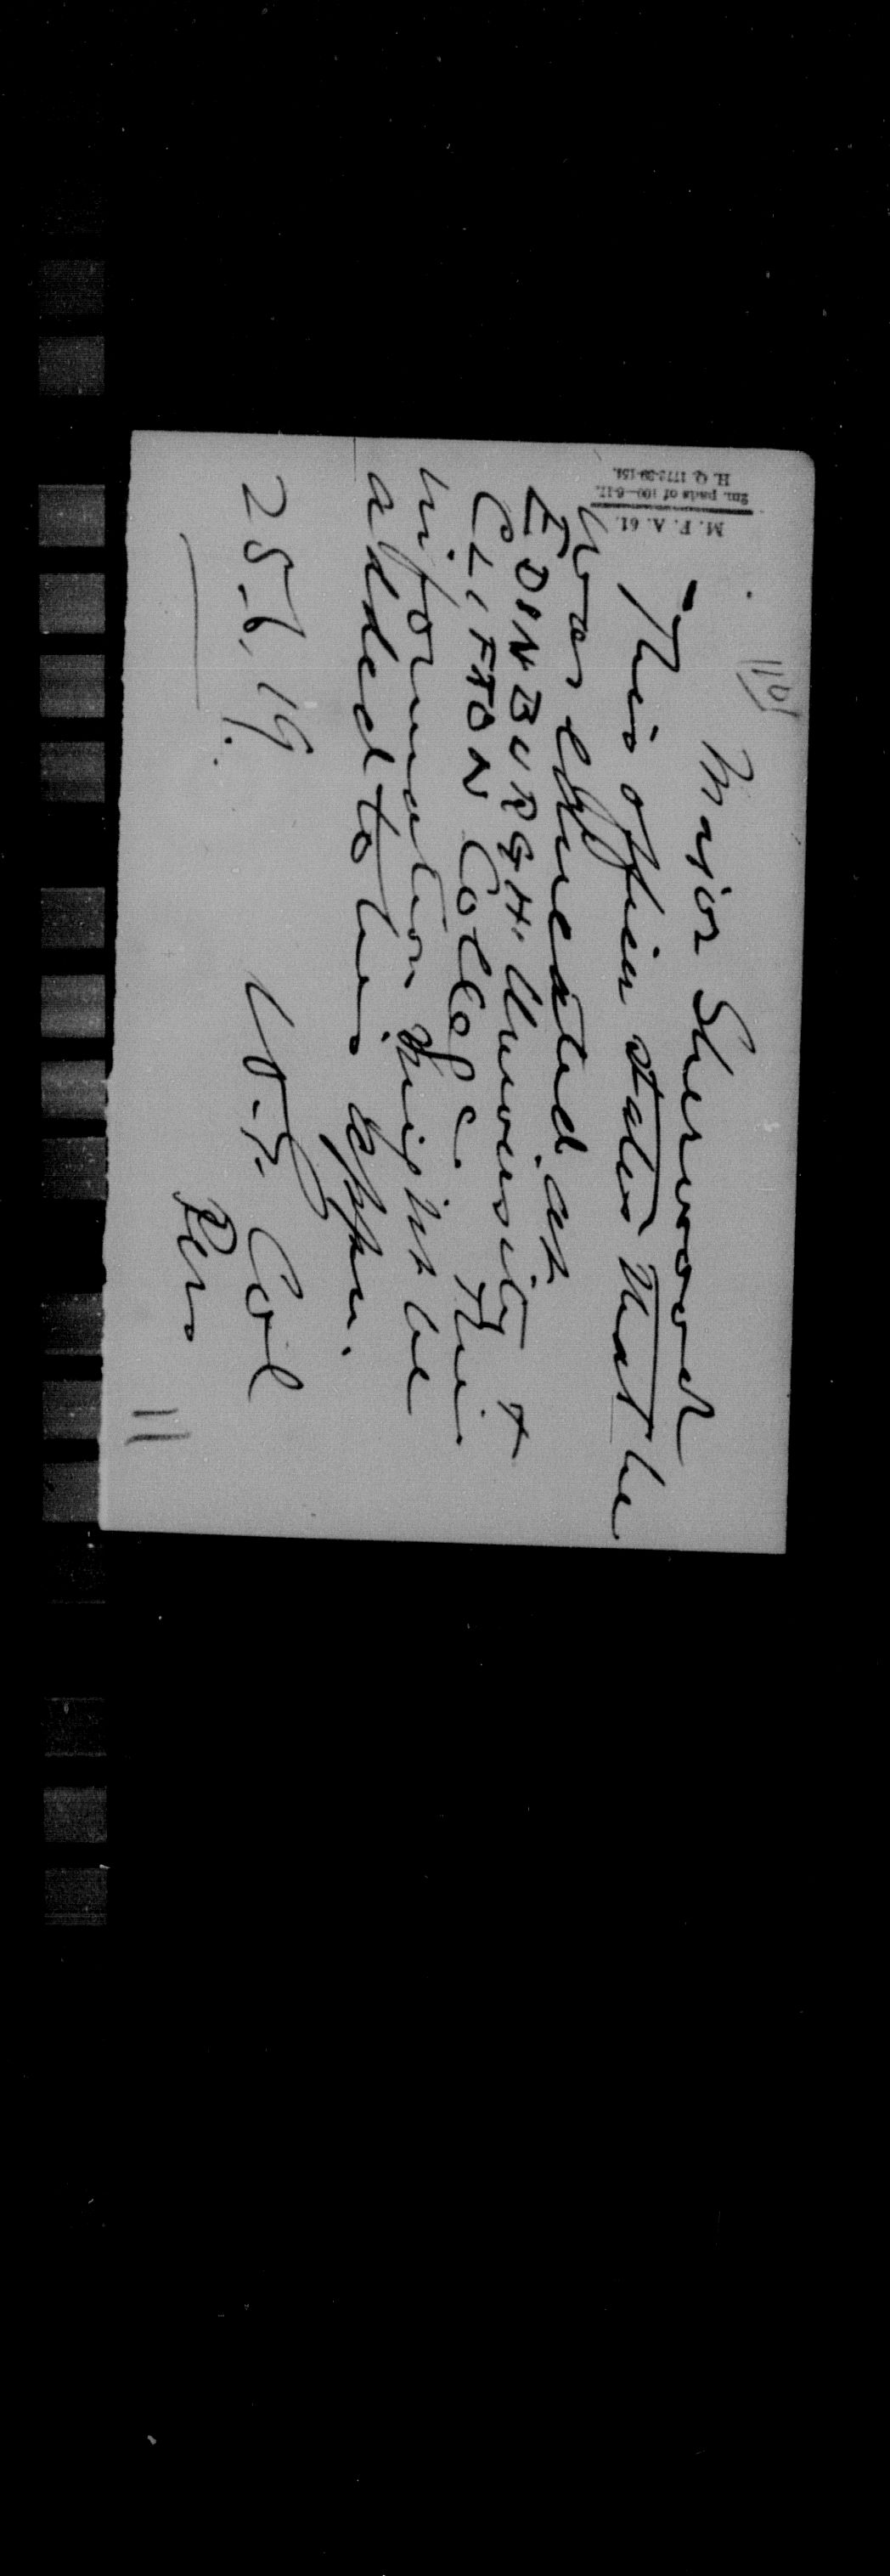 M. F. A. 61.
2m. pads of 100—6-17.
H. Q. 1772-39-158.
Major Sherwood
This officer states that he
was educated at
EDINBURGH University +
CLIFTON College. This
information might be
added to his appn.
25.6.19.
Col